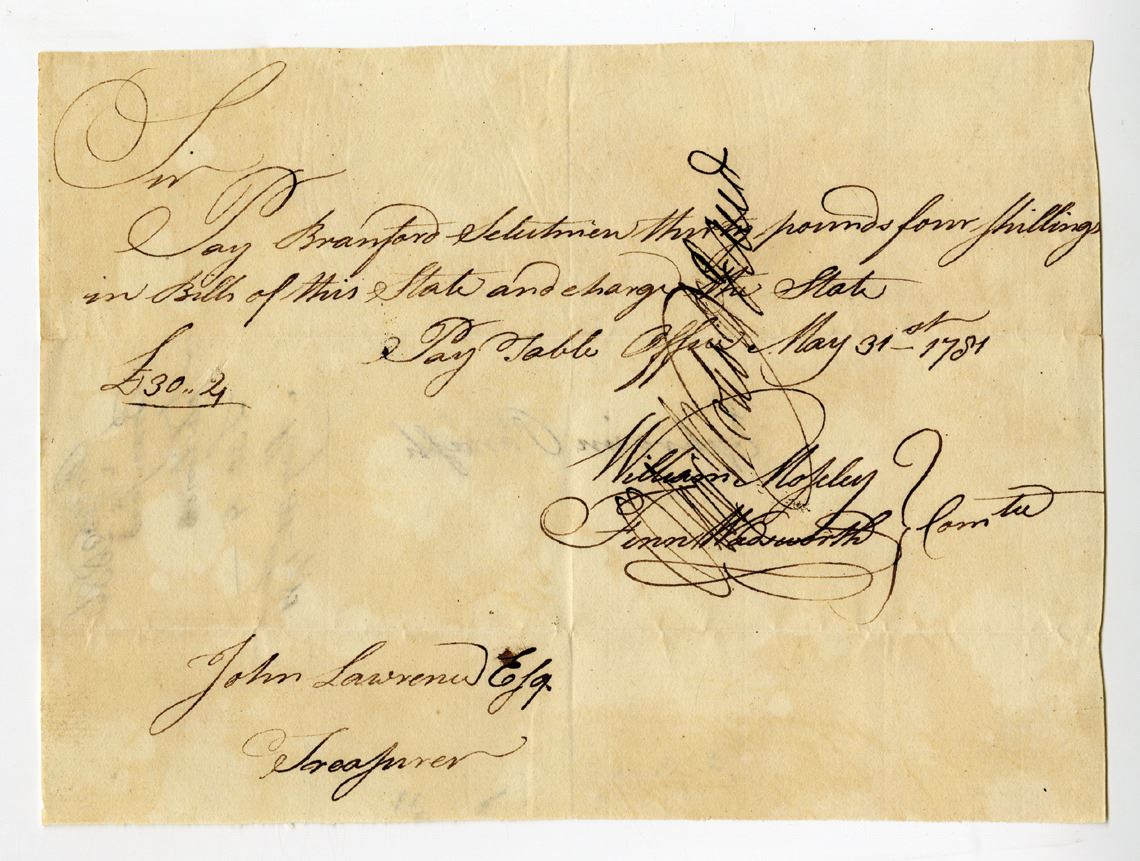 Sir
Pay Branford Selectmen thirty pounds four shillings
in Bills of this State and charge the State
Pay Table Office May 31st 1781
£30..4
William Moseley
Fenn Wadsworth } Comtee
John Lawrence Esqr
Treasurer